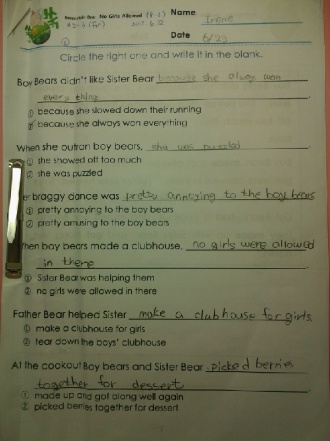 Berenstain Bears No Girls Allowed
Name Irene
Date 6/23
Circle the right one and write it in the blank.
Boy Bears didn't like Sister Bear because she always won
every thing
① because she slowed down their running
② because she always won everything
When she outran boy bears, she was puzzled
① she showed off too much
② she was puzzled
braggy dance was pretty annoying to the boy bears
① pretty annoying to the boy bears
② pretty amusing to the boy bears
hen boy bears made a clubhouse. no girls were allowed
in there
① Sister Bear was helping them
② no girls were allowed in there
Father Bear helped Sister make a clubhouse for girls
① make a clubhouse for girls
② tear down the boys' clubhouse
At the cookout Boy bears and Sister Bear picked berries
together for dessert
① made up and got along well again
② picked berries together for dessert